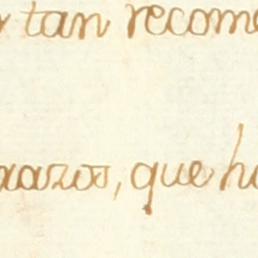 tan recome
razos, que ha